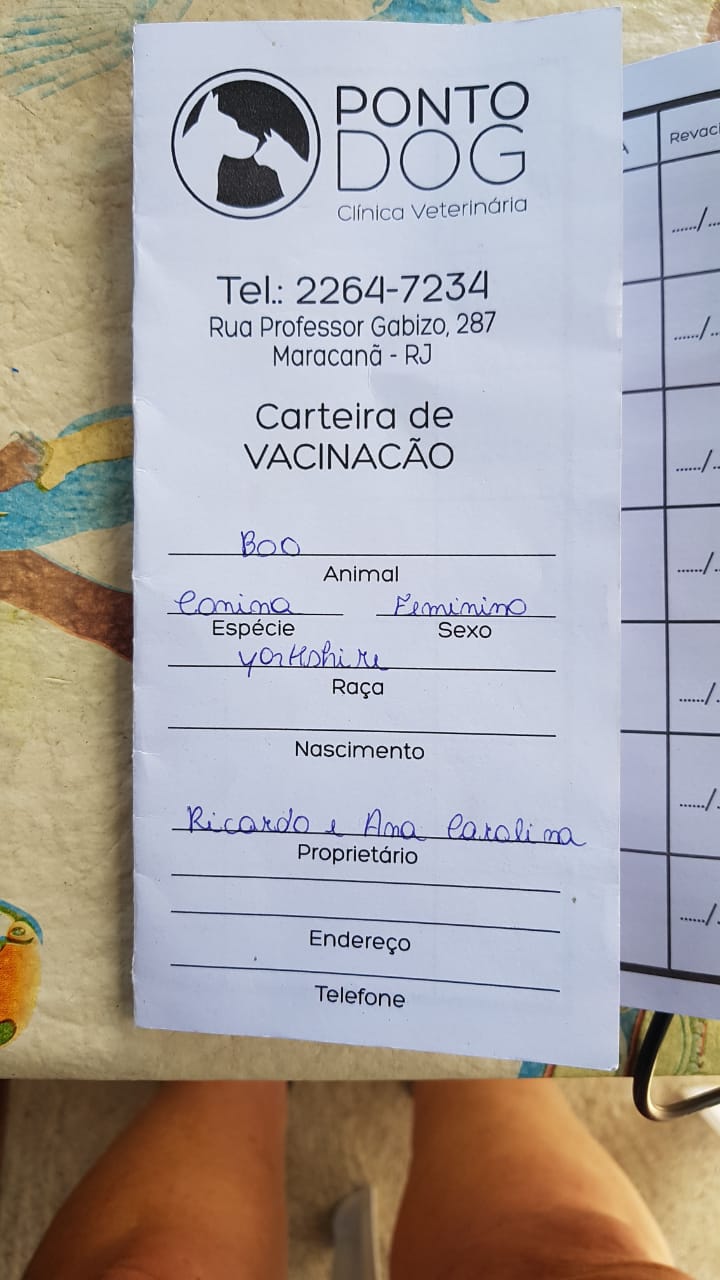 PONTO
DOG
Clínica Veterinária
Tel.: 2264-7234
Rua Professor Gabizo, 287
Maracanã - RJ
Carteira de
VACINACÃO
Boo
Animal
Canina Feminino
Espécie Sexo
yorkshire
Raça
Nascimento
Ricardo e Ana Carolina
Proprietário
Endereço
Telefone
A Revaci
....../..
....../..
....../..
....../..
....../..
....../..
....../..